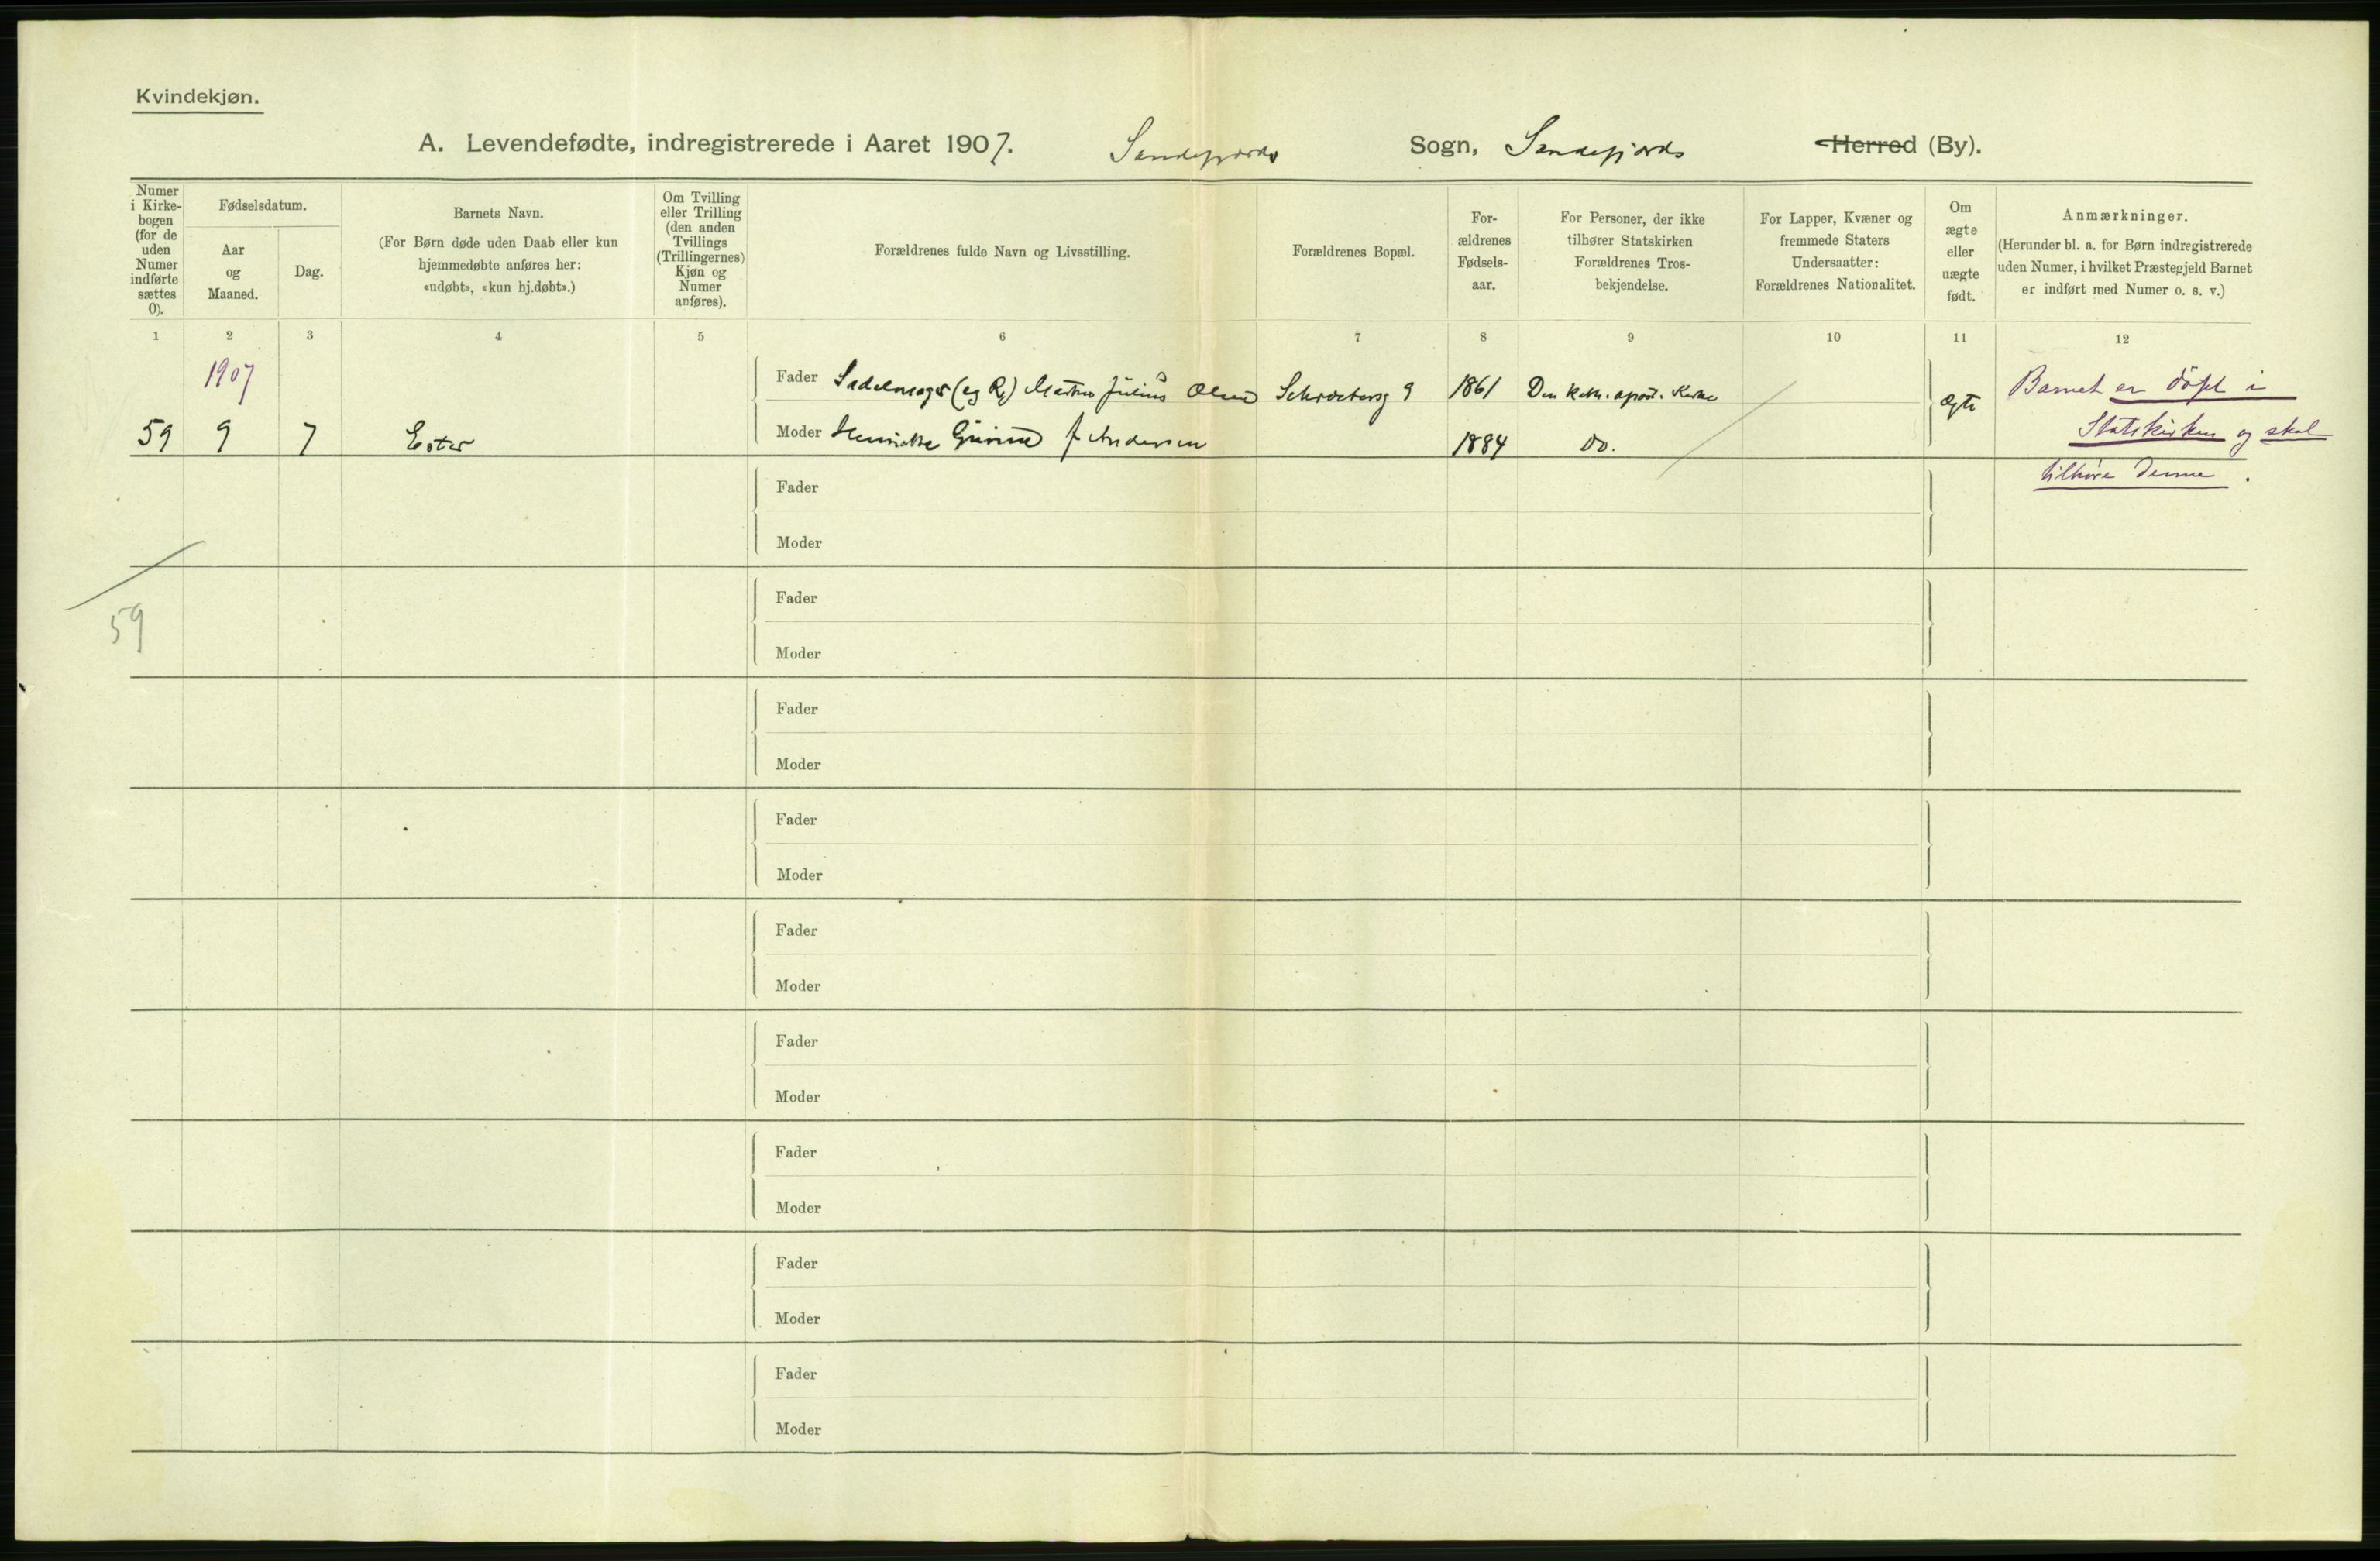 Kvindekjøn.
A. Levendefødte, indregistrerede i Aaret 1907. Sandefjords Sogn, Sandefjords Herred (By).
Numer i Kirkebogen (for de uden Numer indførte sættes 0).
Fødselsdatum.
Aar og Maaned.
Dag.
Barnets Navn.
(For Børn døde uden Daab eller kun hjemmedøbte anføres her: «udøbt», «kun hj.døbt».)
Om Tvilling eller Trilling (den anden Tvillings (Trillingernes) Kjøn og Numer anføres).
Forældrenes fulde Navn og Livsstilling.
Forældrenes Bopæl.
Forældrenes Fødselsaar.
For Personer, der ikke tilhører Statskirken Forældrenes Trosbekjendelse.
For Lapper, Kvæner og fremmede Staters Undersaatter: Forældrenes Nationalitet.
Om ægte eller uægte født.
Anmærkninger.
(Herunder bl. a. for Børn indregistrerede uden Numer, i hvilket Præstegjeld Barnet er indført med Numer o. s. v.)
1 2 3 4 5 6 7 8 9 10 11 12
1907
Fader Sadelmager (eg R) Julius Olsen 9 1861 Den kath. apost. Kirke ægte Barnet er døpt i
59 9 7 Ester Moder J Andersen 1884 Do. Statskirken og skal
tilhøre denne.
Fader
Moder
59
Fader
Moder
Fader
Moder
Fader
Moder
Fader
Moder
Fader
Moder
Fader
Moder
Fader
Moder
Fader
Moder